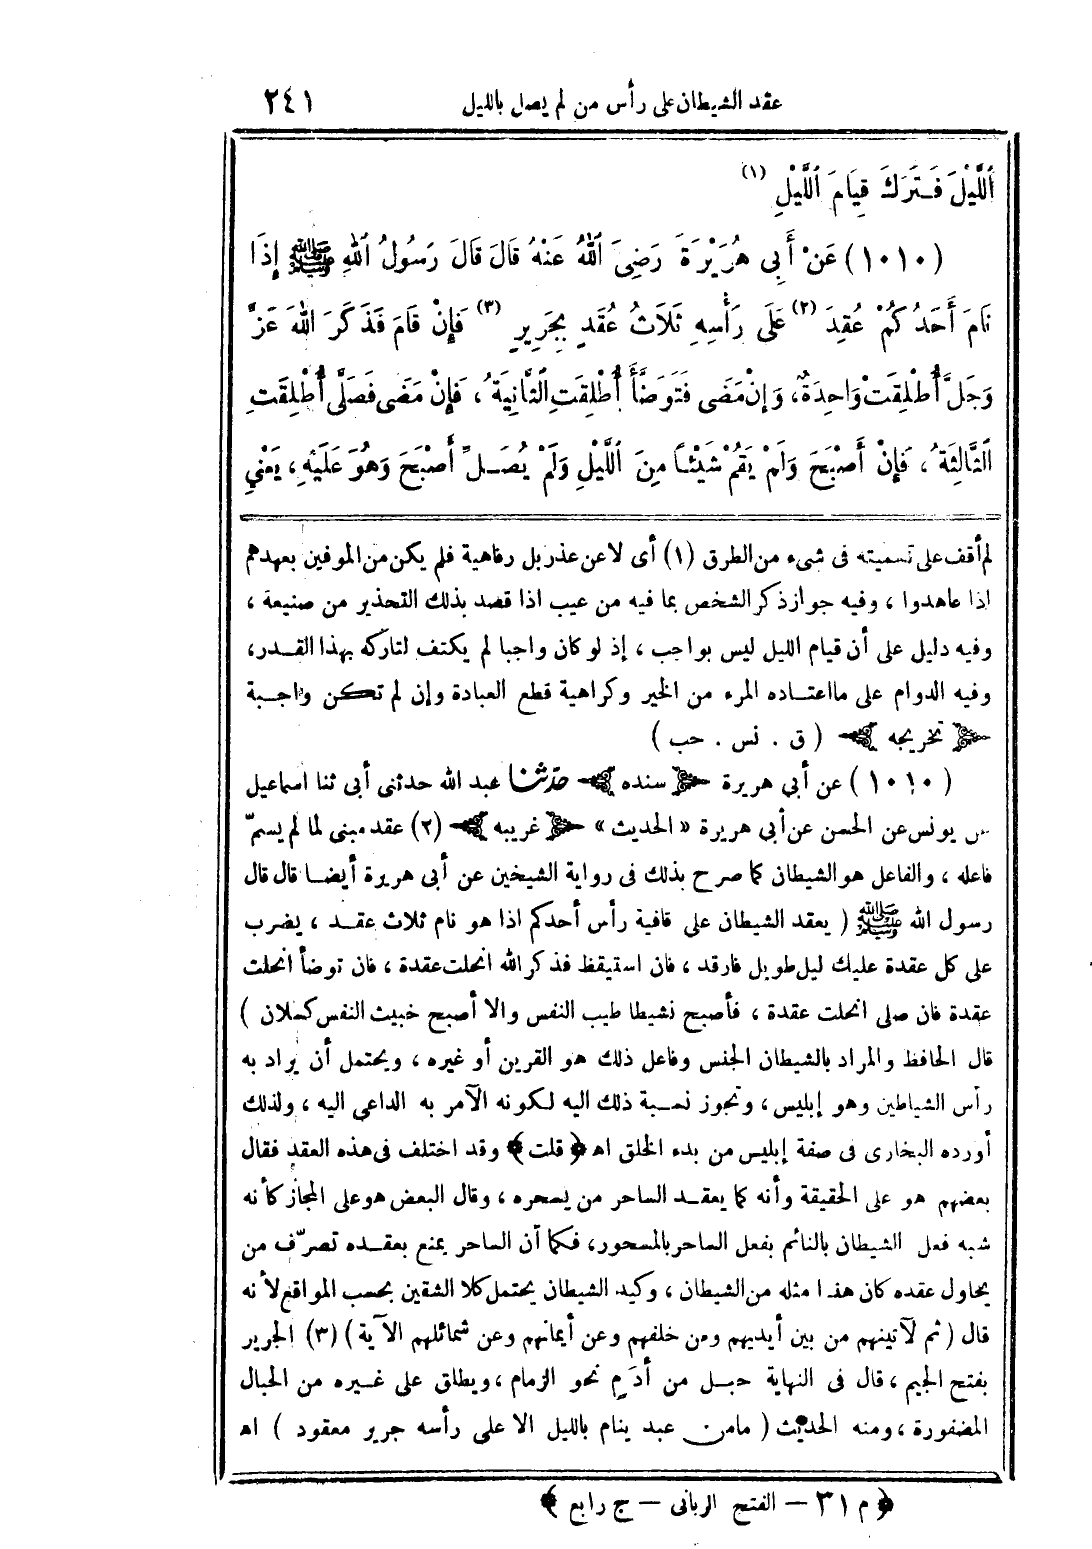 عقد الشيطان على رأس من لم يصل بالليل ٢٤١
ٱللَّيْلَ فَتَرَكَ قِيَامَ ٱللَّيْلِ (١)
(١٠١٠) عَنْ أَبِي هُرَيْرَةَ رَضِيَ ٱللهُ عَنْهُ قَالَ قَالَ رَسُولُ ٱللهِ ﷺ إِذَا
نَامَ أَحَدُكُمْ عُقِدَ (٢) عَلَى رَأْسِهِ ثَلَاثُ عُقَدٍ بِجَرِيرٍ (٣) فَإِنْ قَامَ فَذَكَرَ اللهَ عَزَّ
وَجَلَّ أُطْلِقَتْ وَاحِدَةٌ، وَإِنْ مَضَى فَتَوَضَّأَ أُطْلِقَتِ ٱلثَّانِيَةُ، فَإِنْ مَضَى فَصَلَّى أُطْلِقَتِ
ٱلثَّالِثَةُ، فَإِنْ أَصْبَحَ وَلَمْ يَقُمْ شَيْئًا مِنَ ٱللَّيْلِ وَلَمْ يُصَلِّ أَصْبَحَ وَهُوَ عَلَيْهِ، يَعْنِي
لم أقف على تسميته فى شىء من الطرق (١) أى لا عن عذر بل رفاهية فلم يكن من الموفين بعهدهم
اذا عاهدوا ، وفيه جواز ذكر الشخص بما فيه من عيب اذا قصد بذلك التحذير من صنيعة ،
وفيه دليل على أن قيام الليل ليس بواجب ، إذ لو كان واجبا لم يكتف لتاركه بهذا القدر،
وفيه الدوام على ما اعتاده المرء من الخير وكراهية قطع العبادة وإن لم تكن واجبة
﴿ تخريجه ﴾ ( ق . نس . حب )
(١٠١٠) عن أبي هريرة ﴿ سنده ﴾ حدثنا عبد الله حدثنى أبى ثنا اسماعيل
يونس عن الحسن عن أبى هريرة « الحديث » ﴿ غريبه ﴾ (٢) عقد مبنى لما لم يسمّ
فاعله ، والفاعل هو الشيطان كما صرح بذلك فى رواية الشيخين عن أبى هريرة أيضا قال قال
رسول الله ﷺ ( يعقد الشيطان على قافية رأس أحدكم اذا هو نام ثلاث عقد ، يضرب
على كل عقدة عليك ليل طويل فارقد ، فان استيقظ فذكر الله انحلت عقدة ، فان توضأ انحلت
عقدة فان صلى انحلت عقدة ، فأصبح نشيطا طيب النفس والا أصبح خبيث النفس كسلان )
قال الحافظ والمراد بالشيطان الجنس وفاعل ذلك هو القرين أو غيره ، ويحتمل أن يراد به
رأس الشياطين وهو إبليس ، وتجوز نسبة ذلك اليه لكونه الآمر به الداعى اليه ، ولذلك
أورده البخارى فى صفة إبليس من بدء الخلق اه ﴿ قلت ﴾ وقد اختلف فى هذه العقد فقال
بعضهم هو على الحقيقة وأنه كما يعقد الساحر من يسحره ، وقال البعض هو على المجاز كأنه
شبه فعل الشيطان بالنائم بفعل الساحر بالمسحور، فكما أن الساحر يمنع بعقده تصرّف من
يحاول عقده كان هذا مثله من الشيطان ، وكيد الشيطان يحتمل كلا الشقين بحسب المواقع لأنه
قال ( ثم لآتينهم من بين أيديهم ومن خلفهم وعن أيمانهم وعن شمائلهم الآية ) (٣) الجرير
بفتح الجيم ، قال فى النهاية حبل من أدَمٍ نحو الزمام ، ويطلق على غيره من الحبال
المضفورة ، ومنه الحديث ( ما من عبد ينام بالليل الا على رأسه جرير معقود ) اه
﴿ م ٣١ – الفتح الربانى – ج رابع ﴾